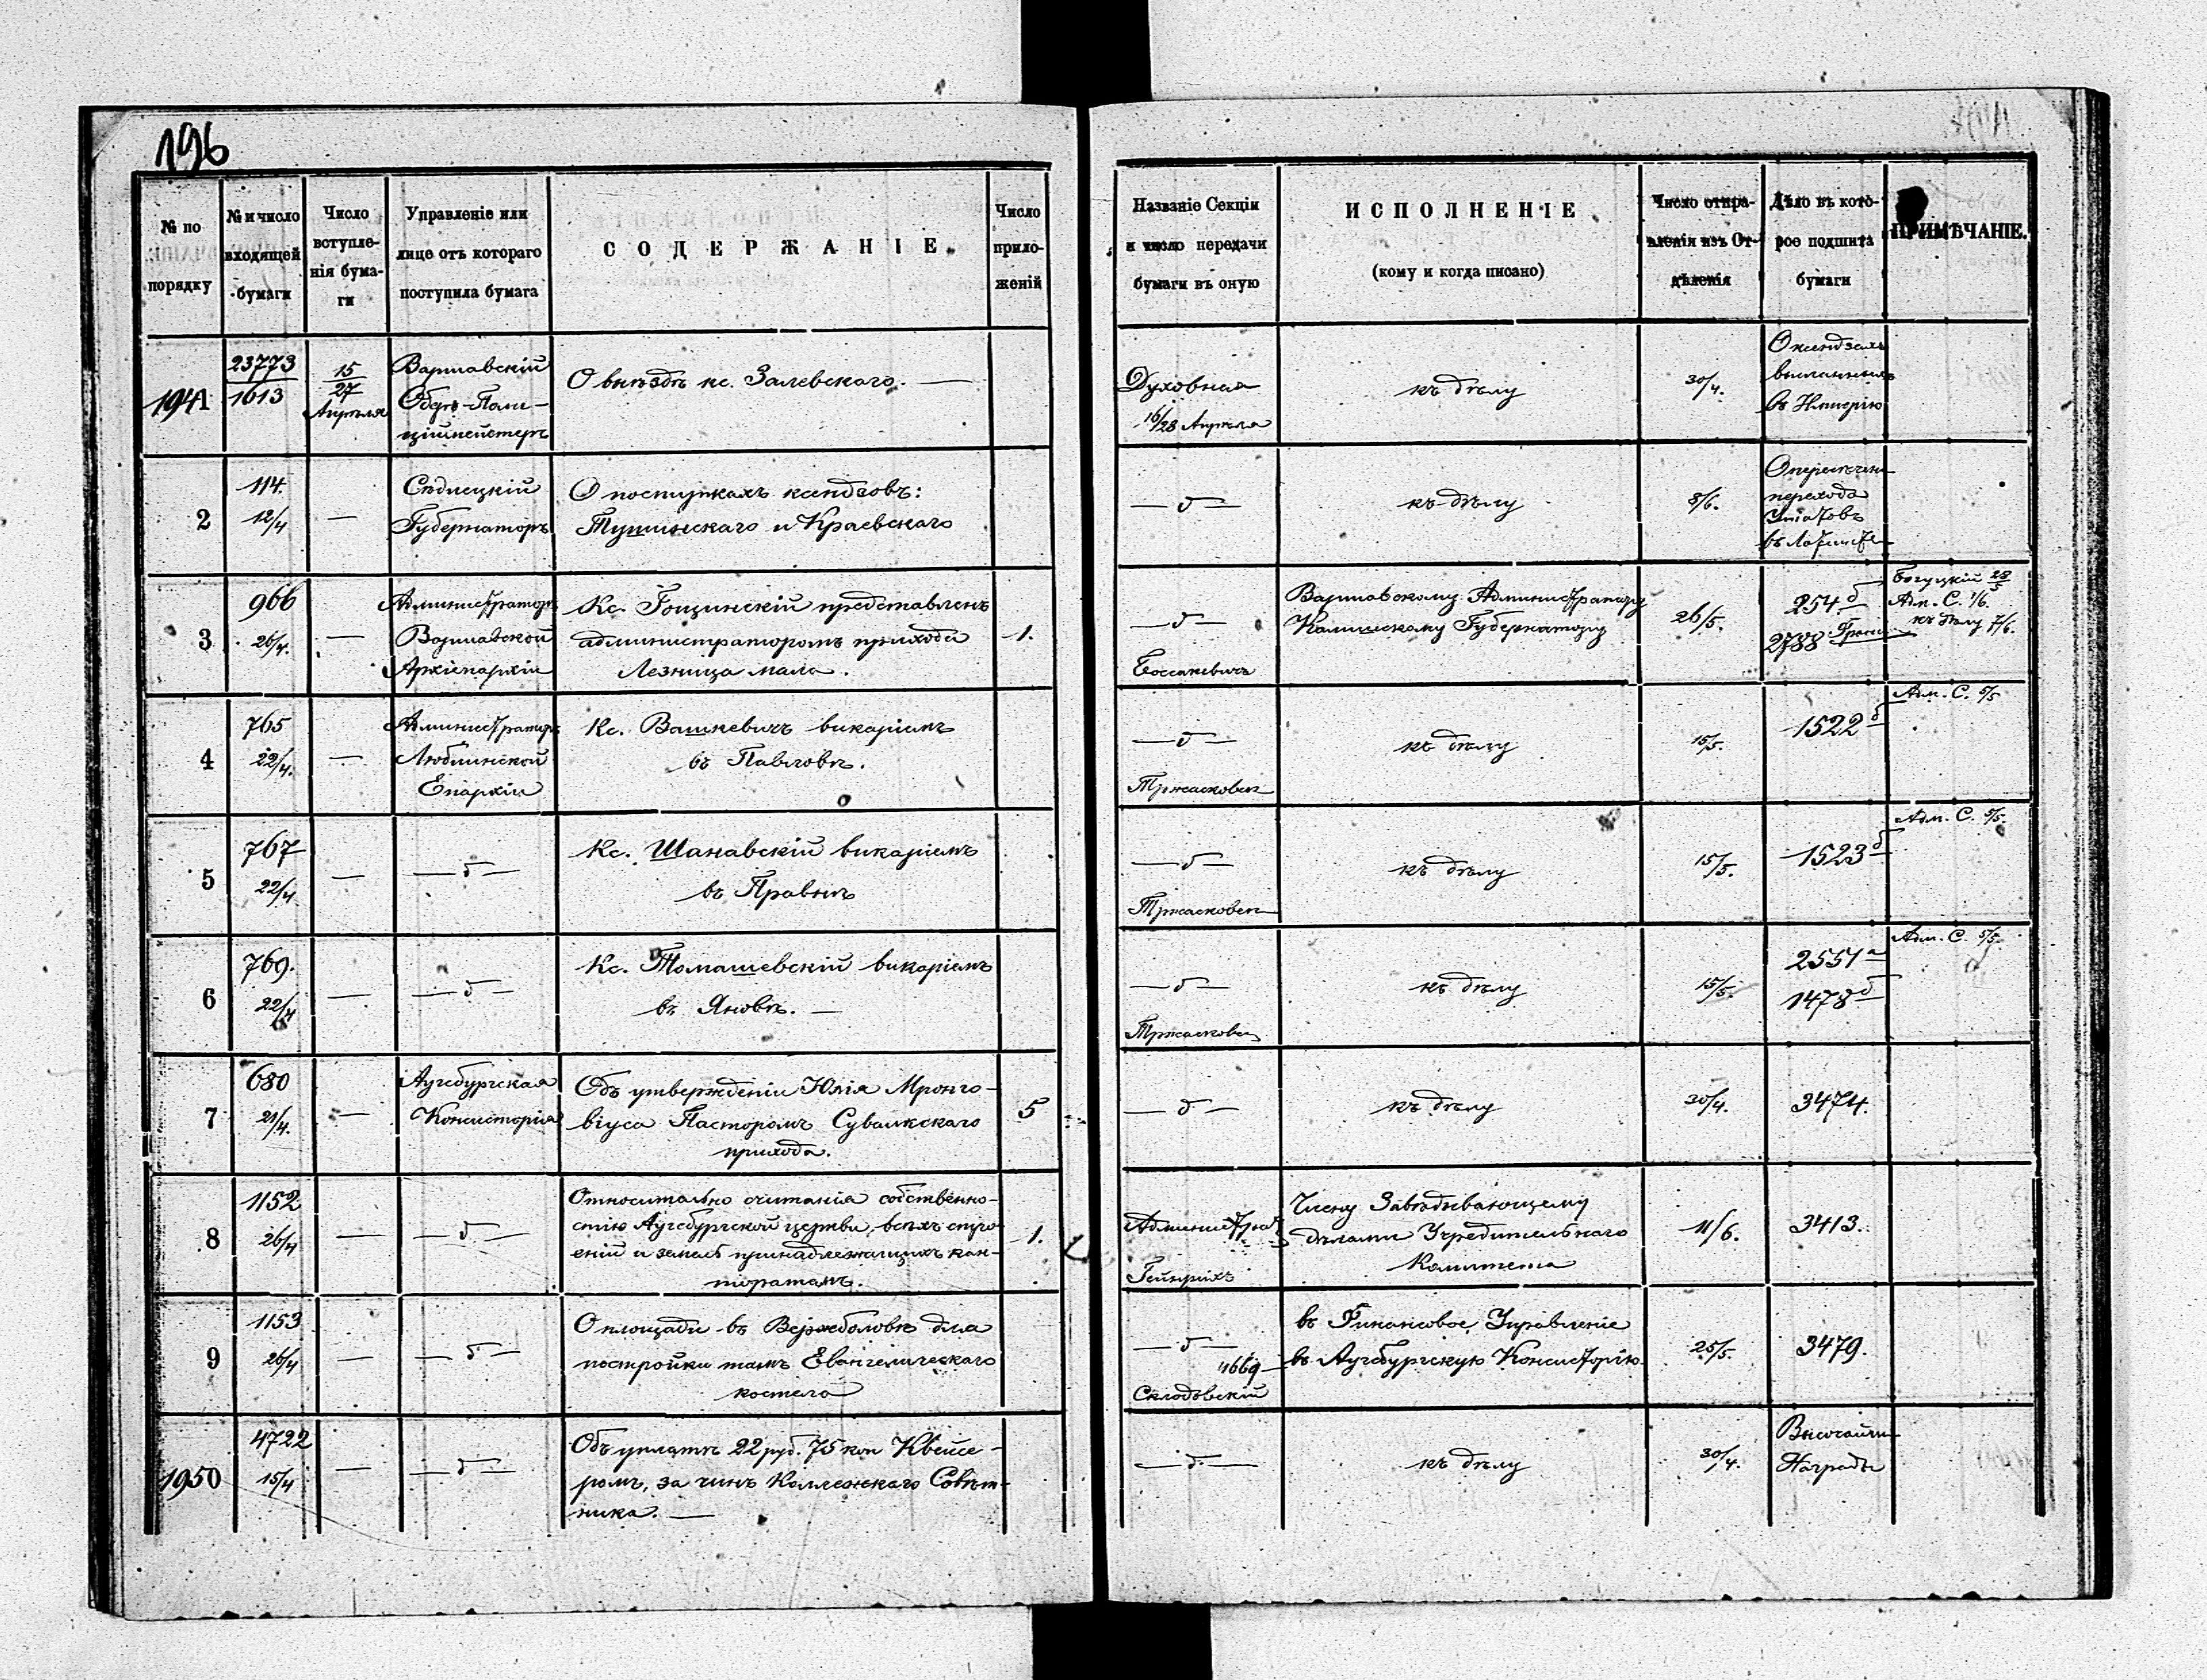 196
№ по порядку
№ и число входящей бумаги
Число вступленія бумаги
Управленіе или лице отъ котораго поступила бумага
СОДЕРЖАНІЕ.
Число приложеній
Названіе Секціи и число передачи бумаги въ оную
ИСПОЛНЕНІЕ
(кому и когда писано)
Число отправленія изъ Отдѣленія
Дѣло въ которое подшита бумаги
ПРИМѢЧАНІЕ.
1941
23773
1613
15
27
Апрѣля
Варшавскій
Оберъ-Поли-
ційместеръ
О выѣздѣ кс. Залевскаго. —
Духовная
16/28 Апрѣля
къ дѣлу
30/4.
О ксендзахъ
высланныхъ
въ Имперію
2
114.
12/4
—
Сѣдлецкій
Губернаторъ
О поступкахъ ксендзовъ:
и Краевскаго
— д —
къ дѣлу
8/6.
перехода
Уніатовъ
въ
3
966
26/4.
—
Администраторъ
Варшавской
Архіепархіи
Кс. Гощинскій представленъ
администраторомъ прихода
Лезница мала.
1.
— д —
Варшавскому Администратору
Калишскому Губернатору
26/5.
254 б
2788
Богуцкій 28/5
Адм. С. 1/6.
къ дѣлу 7/6.
4
765
22/4.
—
Администраторъ
Люблинской
Епархіи
Кс. Вашкевичъ викаріемъ
въ Павловѣ.
— д —
къ дѣлу
15/5.
1522 б
Адм. С. 5/5
5
767
22/4
—
— д —
Кс. Шанавскій викаріемъ
въ Правнѣ
— д —
къ дѣлу
15/5.
1523 б
Адм. С. 5/5.
6
769.
22/4
—
— д —
Кс. Томашевскій викаріемъ
въ Яновѣ. —
— д —
къ дѣлу
15/5.
2551 а
1478 б
Адм. С. 5/5.
7
680
21/4.
—
Аугсбургская
Консисторія
Объ утвержденіи Юлія Мронго-
віуса Пасторомъ Сувалкскаго
прихода.
5
— д —
къ дѣлу
30/4.
3474.
8
1152
26/4
—
— д —
Относительно считанія собственно-
стію Аугсбургской церкви, всѣхъ стро-
еній и земель принадлежащихъ кан-
торатамъ.
1.
Гейнрихъ
Члену Завѣдывающему
дѣлами Учредительнаго
Комитета
11/6.
3413.
9
1153
26/4
—
— д —
О площади въ Вержболовѣ для
постройки тамъ Евангелическаго
костела
— д —
4669
Склодовскій
въ Финансовое Управленіе
въ Аугсбургскую Консисторію
25/5.
3479.
1950
4722
15/4
—
— д —
Объ уплатѣ 22 руб. 75 коп Квейсе-
ромъ, за чинъ Коллежскаго Совѣт-
ника. —
— д —
къ дѣлу
30/4.
Награды